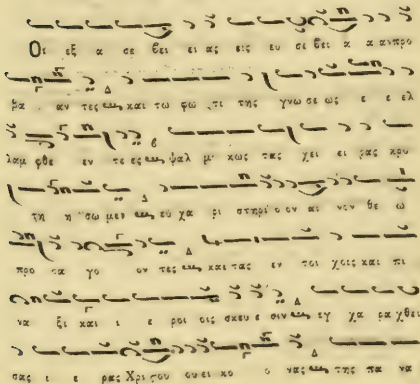 Οι εξ α σε βει ει ας εις ευ σε βει α α ανπρο
βα αν τες και τω φω τι της γνω σε ως ε ε ελ
λαμ φθε εν τε ες ψαλ μι κως τας χει ει ρας κρο
τη η σω μεν ευ χα ρι στηρι ο ον αι νον θε ω
προ σα γο ον τες και τας εν τοι χοις και πι
να ξι και ι ε ροι οις σκευ ε σιν εγ χα ρα χθει
σας ι ε ρας Χρι ςου ου ει κο ο νας της πα να